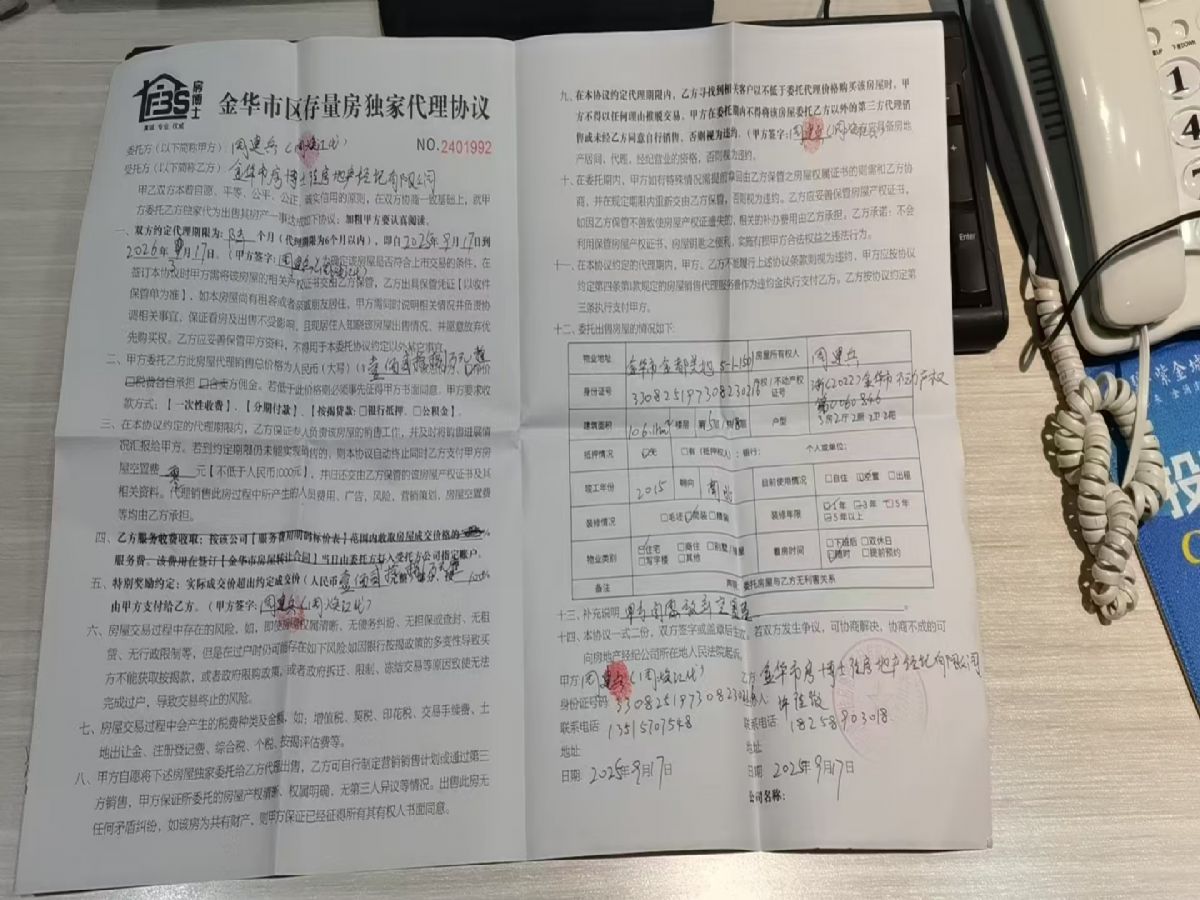 房博士
真诚 专业 权威
金华市区存量房独家代理协议
NO.2401992
委托方(以下简称甲方):周建兵(周 代)
受托方(以下简称乙方):金华市房博士佳房地产经纪有限公司
甲乙双方本着自愿、平等、公平、公正、诚实信用的原则,在双方协商一致基础上,就甲
方委托乙方独家代为出售其房产一事达成如下协议:加粗甲方要认真阅读。
一、双方约定代理期限为: 个月(代理期限为6个月以内),即自2025年9月17日到
2026年 月17日。(甲方签字:周建兵 确定该房屋是否符合上市交易的条件,在
签订本协议时甲方需将该房屋的相关产权证书交由乙方保管,乙方出具保管凭证【以收件
保管单为准】,如本房屋尚有租客或者亲戚朋友居住,甲方需同时说明相关情况并负责协
调相关事宜,保证看房及出售不受影响,且现居住人知晓该房屋出售情况,并愿意放弃优
先购买权。乙方应妥善保管甲方资料,不得用于本委托协议约定以外其它事宜。
二、甲方委托乙方此房屋代理销售总价格为人民币(大写)(壹佰 万元整
□税费各自承担 方佣金。若低于此价格则必须事先征得甲方书面同意,甲方要求收
款方式:【一次性收费】、【分期付款】、【按揭贷款:□银行抵押、□公积金】。
三、在本协议约定的代理期限内,乙方保证专人负责该房屋的销售工作,并及时将销售进展情
况汇报给甲方。若到约定期限仍未能实现销售的,则本协议自动终止同时乙方支付甲方房
屋空置费 元【不低于人民币1000元】,并归还交由乙方保管的该房屋产权证书及其
相关资料。代理销售此房过程中所产生的人员费用、广告、风险、营销策划、房屋空置费
等均由乙方承担。
四、乙方服务收费收取:按该公司【服务费用明码标价表】范围内收取房屋成交价格的
服务费。该费用在签订【金华市房屋转让合同】当日由委托方打入受托方公司指定账户。
五、特别奖励约定:实际成交价超出约定成交价(人民币壹佰 万元整
由甲方支付给乙方。(甲方签字:周建兵(周 代)
六、房屋交易过程中存在的风险,如,即使房屋权属清晰、无债务纠纷、无担保或查封、无租
赁、无行政限制等,但是在过户时仍可能存在如下风险:如因银行按揭政策的多变性导致买
方不能获取按揭款,或者政府限购政策,或者政府拆迁、限制、冻结交易等原因致使无法
完成过户,导致交易终止的风险。
七、房屋交易过程中会产生的税费种类及金额,如:增值税、契税、印花税、交易手续费、土
地出让金、注册登记费、综合税、个税、按揭评估费等。
八、甲方自愿将下述房屋独家委托给乙方代理出售,乙方可自行制定营销销售计划或通过第三
方销售,甲方保证所委托的房屋产权清晰、权属明确,无第三人异议等情况。出售此房无
任何矛盾纠纷,如该房为共有财产,则甲方保证已经征得所有其有权人书面同意。
九、在本协议约定代理期限内,乙方寻找到相关客户以不低于委托代理价格购买该房屋时,甲
方不得以任何理由推脱交易。甲方在委托期内不得将该房屋委托乙方以外的第三方代理销
售或未经乙方同意自行销售,否则视为违约。(甲方签字:周建兵 方应具备房地
产居间、代理、经纪营业的资格,否则视为违约。
十、在委托期内,甲方如有特殊情况需提前拿回由乙方保管之房屋权属证书的则需和乙方协
商,并在规定期限内重新交由乙方保管,否则视为违约。乙方应妥善保管房屋产权证书,
如因乙方保管不善致使房屋产权证遗失的,相关的补办费用由乙方承担。乙方承诺:不会
利用保管房屋产权证书、房屋钥匙之便利,实施有损甲方合法权益之违法行为。
十一、在本协议约定的代理期内,甲方、乙方不能履行上述协议条款则视为违约,甲方应按协议
约定第四条第1款规定的房屋销售代理服务费作为违约金执行支付乙方。乙方按协议约定第
三条执行支付甲方。
十二、委托出售房屋的情况如下:
物业地址 金华市金都美地5-1-1501 房屋所有权人 周建兵
身份证号 330825197308230216 产权/不动产权证号 浙(2022)金华市不动产权第0060846
建筑面积 106.11m² 楼层 户型 3房2厅2卫
抵押情况 □无 □有(抵押权人):银行: 个人或单位:
竣工年份 2015 朝向 南 目前使用情况 □自住 □空置 □出租
装修情况 □毛坯 □简装 □精装 装修年限 □1年 □3年 □5年 □5年以上
物业类别 □住宅 □商住 □别墅 □写字楼 □其他 看房时间 □下班后 □双休日 □随时 □提前预约
备注 声明:委托房屋与乙方无利害关系
十三、补充说明
十四、本协议一式二份,双方签字或盖章后生效,若双方发生争议,可协商解决,协商不成的可
向房地产经纪公司所在地人民法院起诉。
甲方:周建兵(周 代)
乙方:金华市房博士佳房地产经纪有限公司
身份证号码:330825197308230216
联系电话:13515707548
联系电话:18258903018
地址
地址
日期:2025年9月17日
日期:2025年9月17日
公司名称:
Enter
1
4
7
紫金城